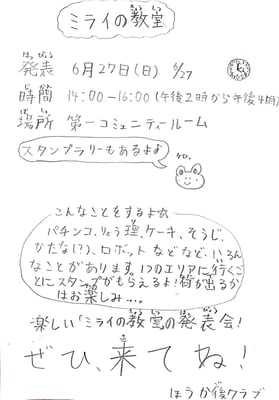 ミライの教室
発表 6月27日(日) 6/27
時間 14:00-16:00(午後2時から午後4時)
場所 第一コミュニティールーム
スタンプラリーもあるよ♪
こんなことをするよ☆
パチンコ、りょう理、ケーキ、そうじ、
かたな(?)、ロボットなどなど、いろん
なことがあります。1つのエリアに行くご
とにスタンプがもらえるよ!何が出るか
はお楽しみ…。
楽しい「ミライの教室の発表会!
ぜひ、来てね!
ほうか後クラブ